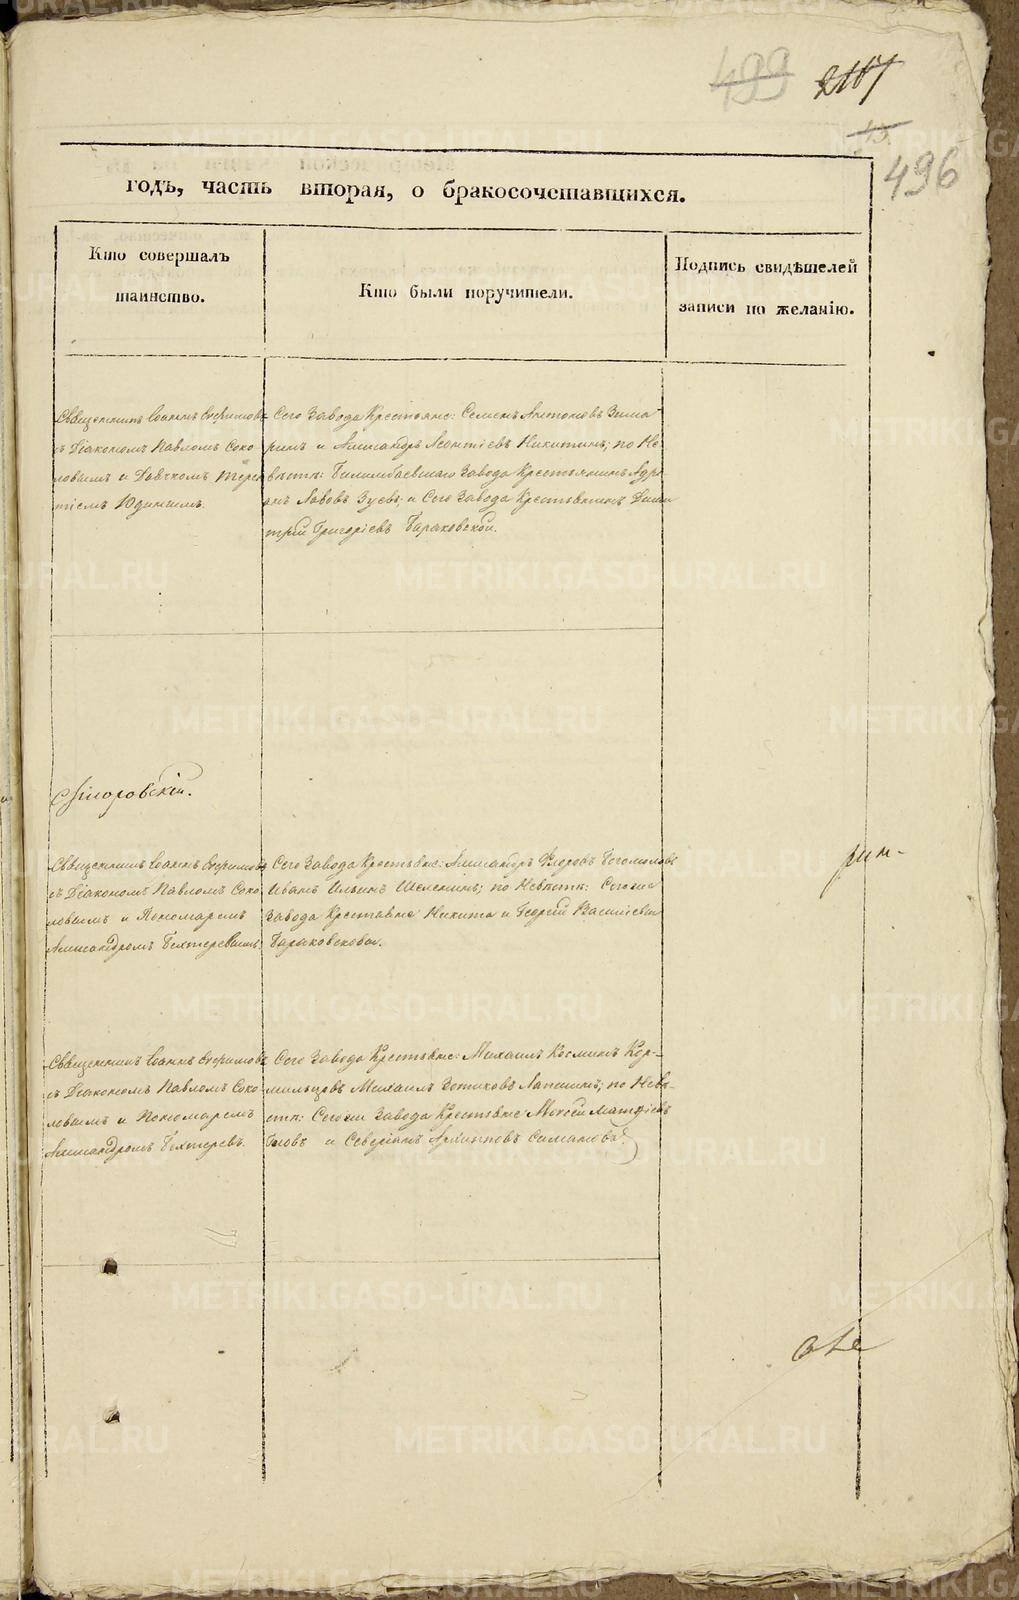 499
2117
13.
496
годъ, часть вторая, о бракосочетавшихся.
Кто совершалъ
таинство.
Кто были поручители.
Подпись свидѣтелей
записи по желанію.
Священникъ Іоаннъ
съ Діакономъ Павломъ Соко-
ловымъ и Дьячкомъ Терен
тіемъ Юдинымъ.
Сего Завода Крестьяне: Семенъ Антоновъ Зима
ринъ и Александръ Леонтіевъ Никитинъ; по Не-
вѣстѣ: Билимбаевскаго Завода Крестьянинъ Адрі
анъ Львовъ Зуевъ; и Сего Завода Крестьянинъ Дими
трій Григоріевъ Бараковской.
Священникъ Іоаннъ
съ Діакономъ Павломъ Соко
ловымъ и Пономаремъ
Александромъ Бехтеревымъ.
Сего Завода Крестьяне: Александръ Федоровъ
Иванъ Ильинъ Шелепинъ; по Невѣстѣ: Сегоже
Завода Крестьяне Никита и Георгій Василіевы
Бараковсковы.
Священникъ Іоаннъ
съ Діакономъ Павломъ Соко-
ловымъ и Пономаремъ
Александромъ Бехтеревъ.
Сего Завода Крестьяне: Михаилъ Космннъ Кор-
мильцовъ Михаилъ Зотиковъ Лапшинъ; по Невѣ-
стѣ: Сегоже Завода Крестьяне Моисей Матфіевъ
и Северіанъ
METRIKI.GASO-URAL.RU